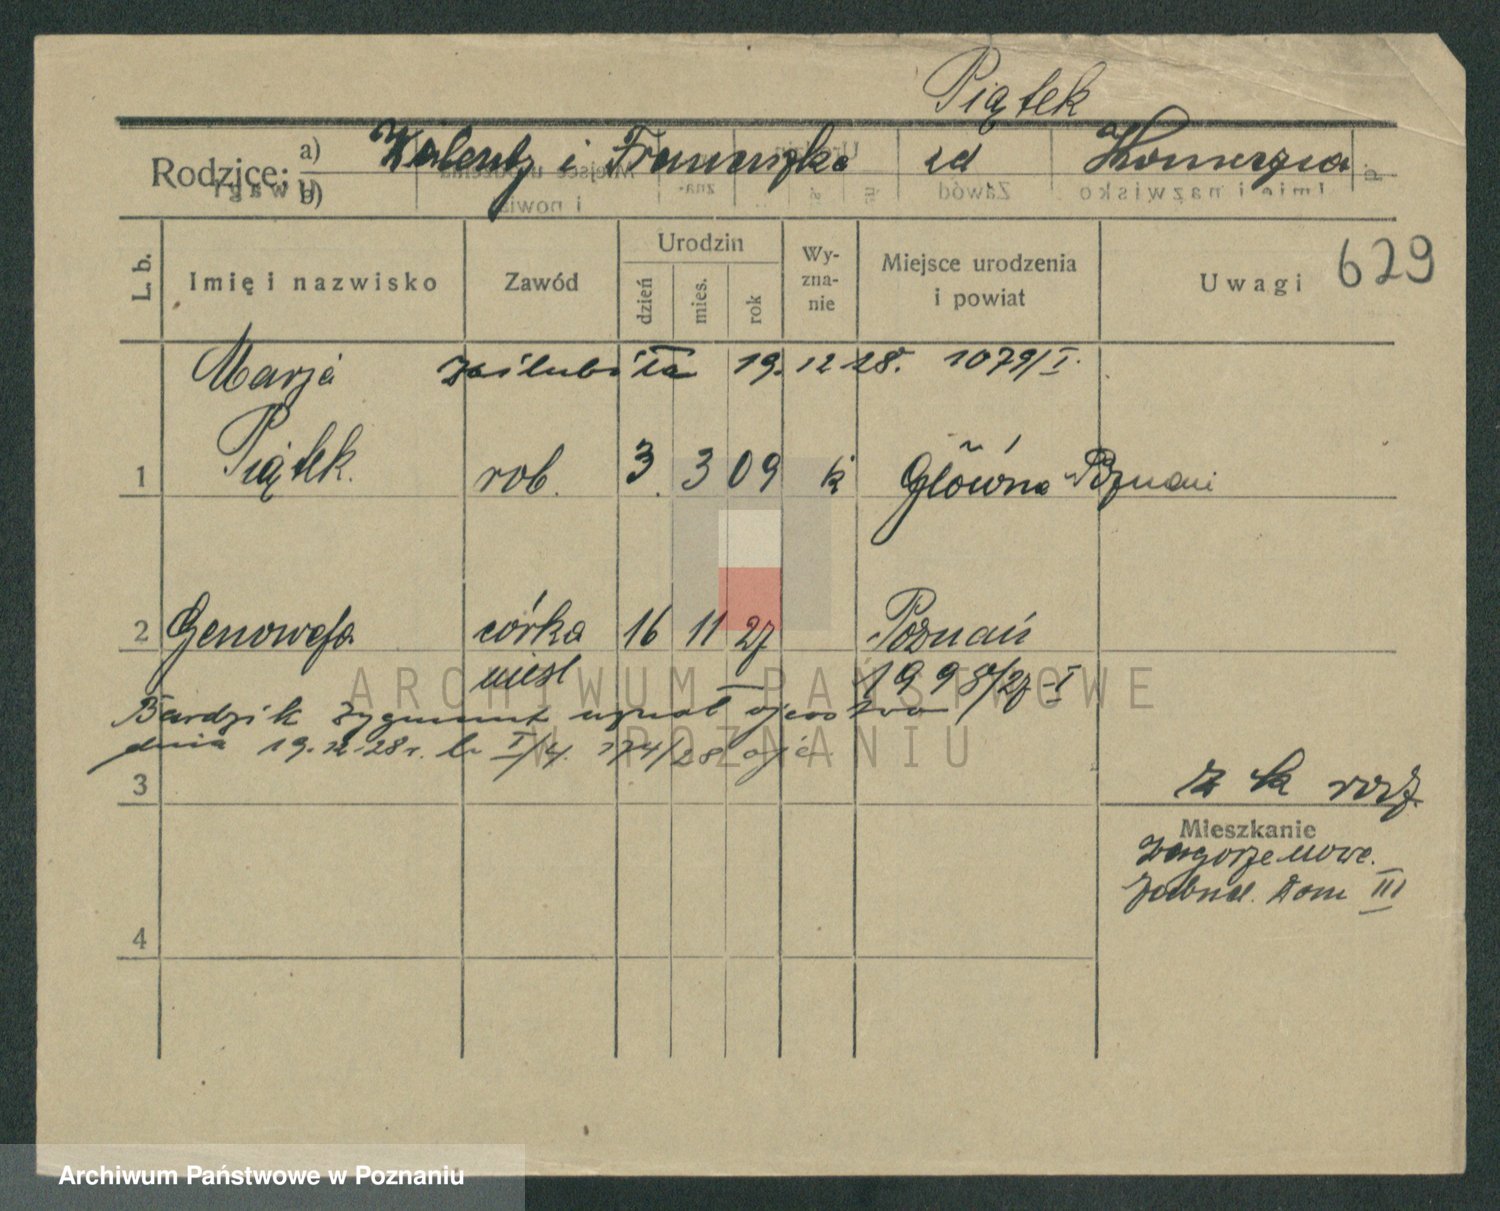 Piątek
Rodzice: a) Walenty i Franciszka zd Konieczna
b)
L. b. Imię i nazwisko Zawód Urodzin dzień mies. rok Wy-zna-nie Miejsce urodzenia i powiat Uwagi 629
Marja zaślubiła 19. 12 28. 1079/I.
1 Piątek. rob. 3. 3 09 k Główna Poznań
2 Genowefa córka 16 11 27 Poznań
nieśl 1998/27 I
Bardzik Zygmunt uznał ojcostwo
dnia 19.12.28 r. 174/28
3
Mieszkanie
Dom III
4
ARCHIWUM PAŃSTWOWE
W POZNANIU
Archiwum Państwowe w Poznaniu